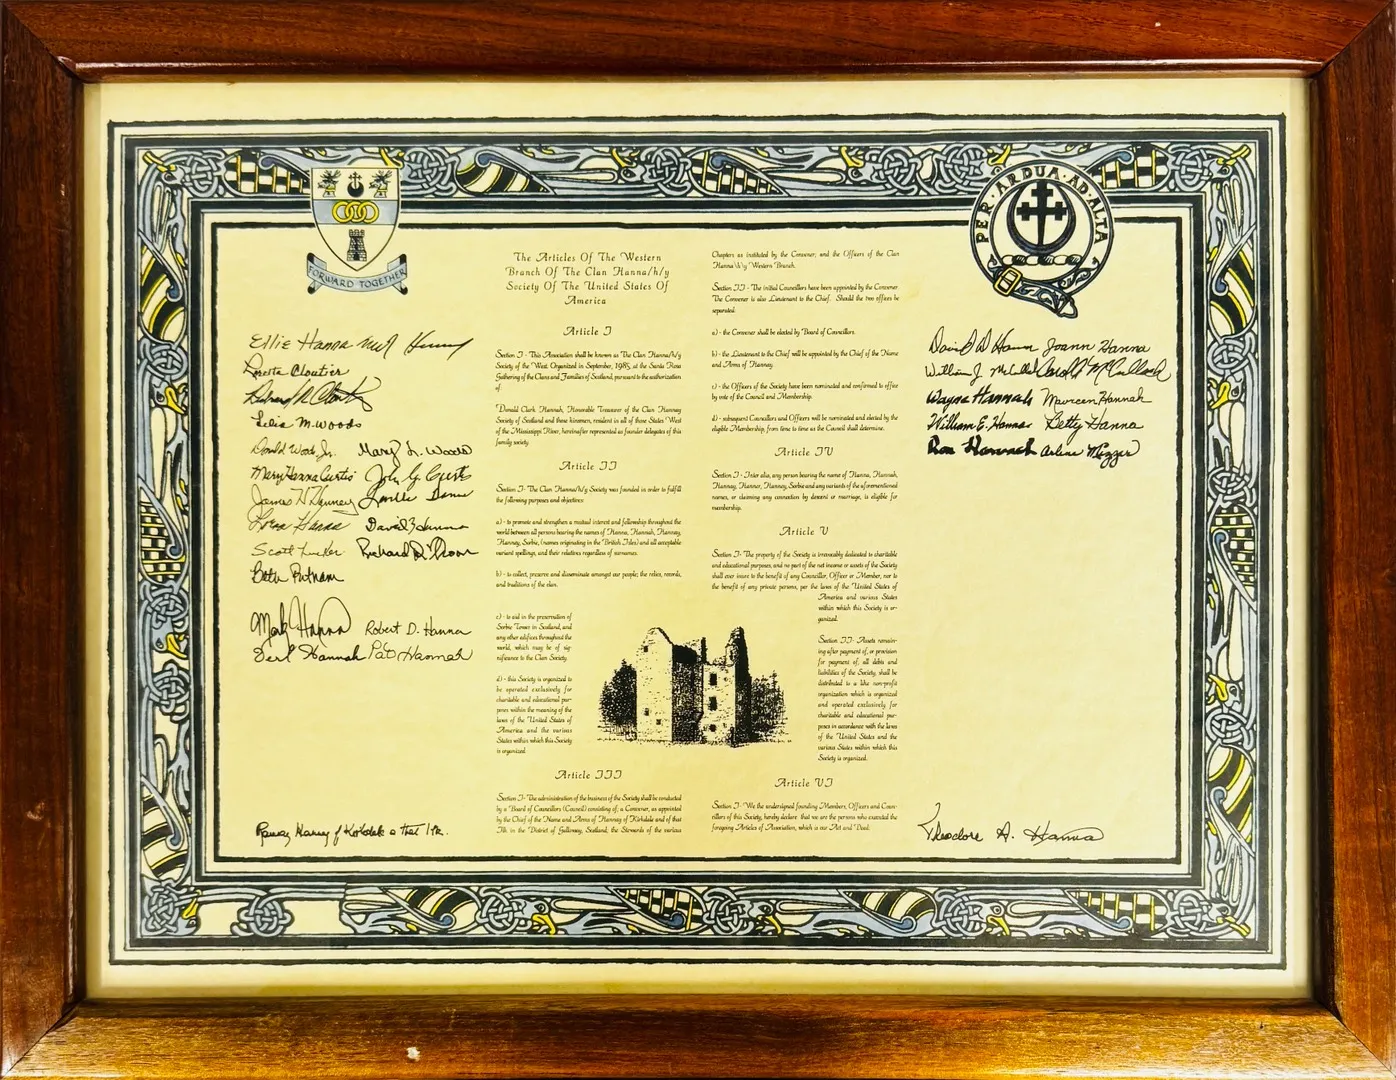 FORWARD TOGETHER
PER · ARDUA · AD · ALTA
Ellie Hanna
Loretta Cloutier
Lelia M. Woods
Donald Woods, Jr. Mary L. Woods
Mary Hanna Curtis John G. Curtis
James H.
Hanna David Z Hanna
Scott Tucker Richard
Beth Putnam
Mark Hanna Robert D. Hanna
Earl Hannah Pat Hannah
The Articles Of The Western
Branch Of The Clan Hanna/h/y
Society Of The United States Of
America
Article I
Section I - This Association shall be known as The Clan Hanna/h/y
Society of the West. Organized in September, 1985, at the Santa Rosa
Gathering of the Clans and Families of Scotland, pursuant to the authorization
of
Donald Clark Hannah, Honorable Treasurer of the Clan Hannay
Society of Scotland and those kinsmen, resident in all of those States West
of the Mississippi River, hereinafter represented as founder delegates of this
family society.
Article II
Section I - The Clan Hanna/h/y Society was founded in order to fulfill
the following purposes and objectives:
a) - to promote and strengthen a mutual interest and fellowship throughout the
world between all persons bearing the names of Hanna, Hannah, Hannay,
Hanney, Sorbie, (names originating in the British Isles) and all acceptable
variant spellings, and their relatives regardless of surnames.
b) - to collect, preserve and disseminate amongst our people; the relics, records,
and traditions of the clan.
c) - to aid in the preservation of
Sorbie Tower in Scotland, and
any other edifices throughout the
world, which may be of sig-
nificance to the Clan Society.
d) - this Society is organized to
be operated exclusively for
charitable and educational pur-
poses within the meaning of the
laws of the United States of
America and the various
States within which this Society
is organized.
Article III
Section I - The administration of the business of the Society shall be conducted
by a Board of Councillors (Council) consisting of; a Convener, as appointed
by the Chief of the Name and Arms of Hannay of Kirkdale and of that
Ilk in the District of Galloway, Scotland; the Stewards of the various
Chapters as instituted by the Convener; and the Officers of the Clan
Hanna/h/y Western Branch.
Section II - The initial Councillors have been appointed by the Convener.
The Convener is also Lieutenant to the Chief. Should the two offices be
separated:
a) - the Convener shall be elected by Board of Councillors.
b) - the Lieutenant to the Chief will be appointed by the Chief of the Name
and Arms of Hannay.
c) - the Officers of the Society have been nominated and confirmed to office
by vote of the Council and Membership.
d) - subsequent Councillors and Officers will be nominated and elected by the
eligible Membership, from time to time as the Council shall determine.
Article IV
Section I - Inter alia, any person bearing the name of Hanna, Hannah,
Hannay, Hanner, Hanney, Sorbie and any variants of the aforementioned
names, or claiming any connection by descent or marriage, is eligible for
membership.
Article V
Section I - The property of the Society is irrevocably dedicated to charitable
and educational purposes, and no part of the net income or assets of the Society
shall ever inure to the benefit of any Councillor, Officer or Member, nor to
the benefit of any private persons, per the laws of the United States of
America and various States
within which this Society is or-
ganized.
Section II - Assets remain-
ing after payment of, or provision
for payment of, all debts and
liabilities of the Society, shall be
distributed to a like non-profit
organization which is organized
and operated exclusively for
charitable and educational pur-
poses in accordance with the laws
of the United States and the
various States within which this
Society is organized.
Article VI
Section I - We the undersigned founding Members, Officers and Coun-
cillors of this Society, hereby declare that we are the persons who executed the
foregoing Articles of Association, which is our Act and Deed:
David W Hanna Joann Hanna
William J. McCulla Carold McCulland
Wayne Hannah Maureen Hannah
William E. Hannas Betty Hanna
Ron Hannah Arlene
Ramsay Hannay of Kirkdale & that Ilk.
Theodore A. Hanna